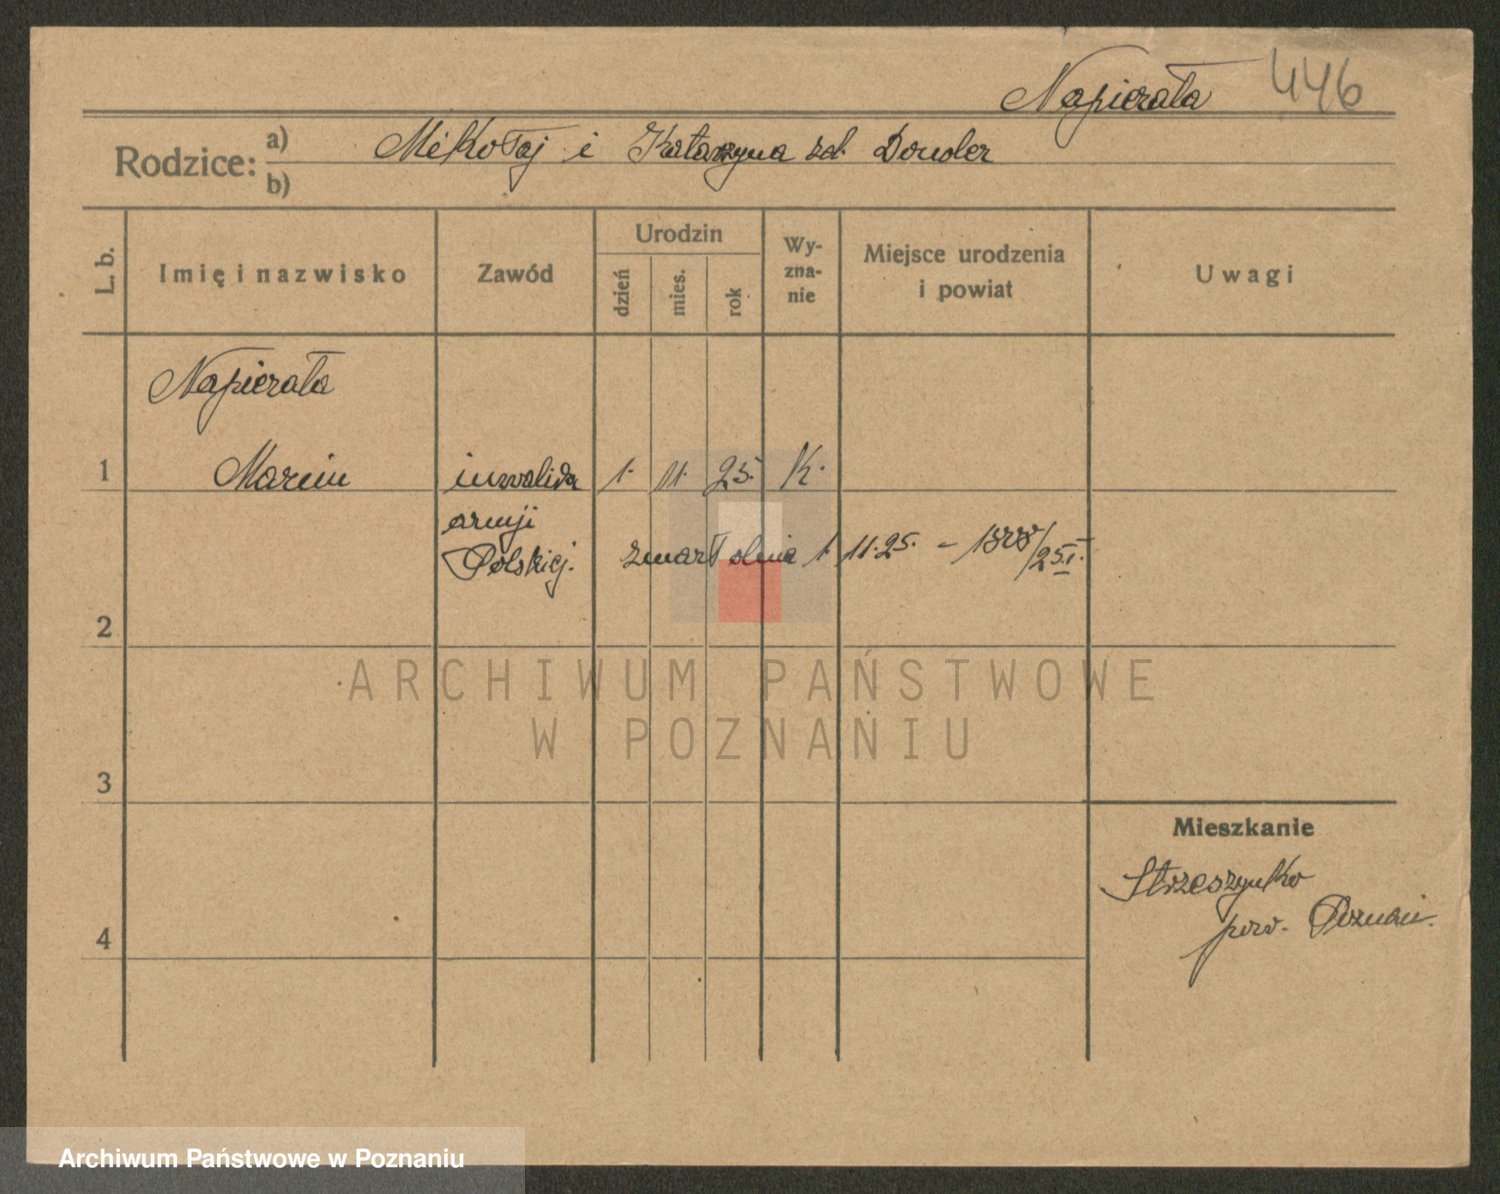 Napierała 446
Rodzice: a) Mikołaj i Katarzyna zd.
b)
L. b.
Imię i nazwisko
Zawód
Urodzin
dzień
mies.
rok
Wy-
zna-
nie
Miejsce urodzenia
i powiat
Uwagi
Napierała
1 Marcin inwalida 1. 11. 25. K.
armji
Polskiej. zmarł dnia 1. 11. 25. –
2
ARCHIWUM PAŃSTWOWE
W POZNANIU
3
Mieszkanie
Strzeszynko
pow. Poznań.
4
Archiwum Państwowe w Poznaniu